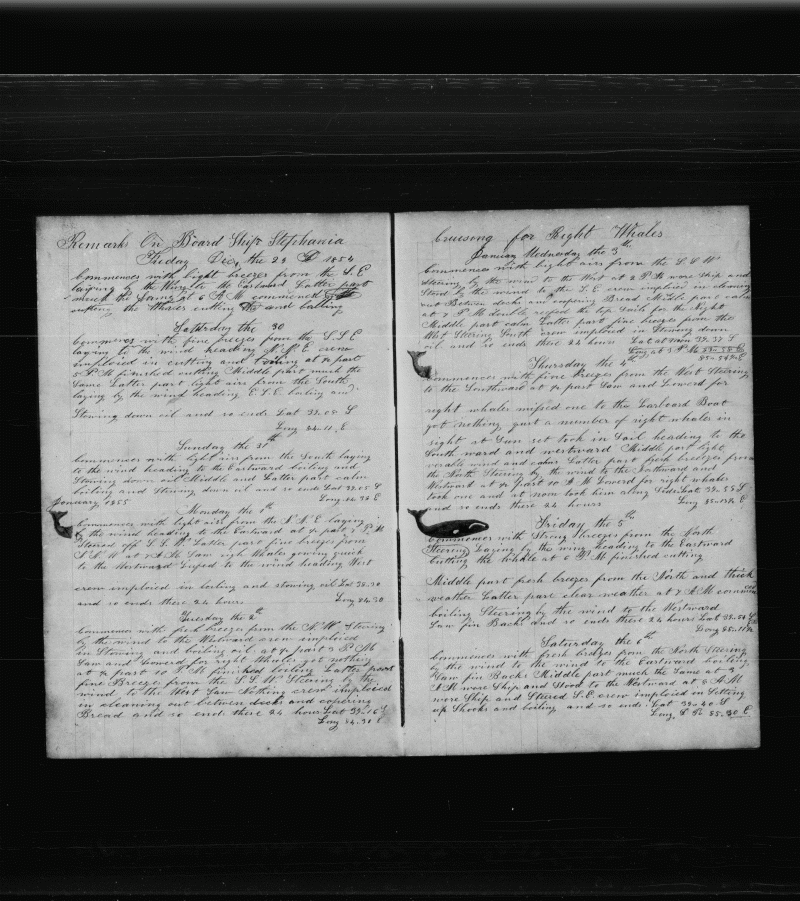 Remarks On Board Ship Stephania
Friday Dec, the 29 1854
Commences with light breezes from the S. E
laying by the Wind to the Eastward Latter part
much the Same at 6 A M commenced
cutting the Whales cutting and boiling
Saturday the 30
Commences with fine breezes from the S. S E
laying to the wind heading N. N. E crew
imploied in cutting and boiling at ¾ part
5 P M finished cutting Middle part much the
Same Latter part light airs from the South
laying by the wind heading E. S. E boiling and
Stowing down oil and so ends Lat 39.09 S
Long 84.11 E
Sunday the 31th
Commences with light airs from the South laying
to the wind heading to the Eastward boiling and
Stowing down oil Middle and Latter part calm
boiling and Stowing down oil and so ends Lat S
January 1855 Long E
Monday the 1th
Commences with light airs from the N. N. E laying
by the wind heading to the Eastward at part P. M
Steared off Latter part fine breezes from
S. S. W at 7 A M Saw right Whales going quick
to the Westward to the wind heading West
crew imploied in boiling and stowing oil Lat 38.30
and so ends these 24 hours Long 84.30
Tuesday the 2th
Commences with fresh breezes from the S. W Stearing
by the wind to the Westward crew imploied
in Stowing and boiling oil at ¾ part 3 P. M
Saw and Lowerd for right Whales got nothing
at ¾ part 10 P. M finished boiling Latter part
fine Breezes from the S. S. W Stearing by the
wind to the West Saw Nothing crew imploied
in cleaning out betwen decks and copering
Bread and so ends these 24 hours Lat 39.16 S
Long 84.30 E
Cruesong for Right Whales
January Wednesday the 3th
Commences with light airs from the S. S W
Stearing by the wind to the West at 2 P. M wore ship and
Stood by the wind to the S. E crew imploied in cleaning
out Between decks and coopering Bread Middle part calm
at 7 P. M double reefed the top Sails for the Night
Middle part calm Latter part fine breezes from the
West Stearing South crew imploied in Stowing down
oil and so ends these 24 hours Lat at noon 39.37 S
Long at 3 P M
85.58 E
Thursday the 4th
Commences with fine breezes from the West Stearing
to the Southward at ¾ part Saw and Lowerd for
right whales missed one to the Larboard Boat
got nothing, part a number of right whales in
sight at Sun set took in Sail heading to the
South ward and westward Middle part light
verable wind and calms Latter part fresh breezes from
the North Stearing by the wind to the Eastward and
Westward at ¾ part 10 A. M Lowerd for right whales
took one and at noon took him along Side Lat 39.55 S
and so ends these 24 hours Long E
Friday the 5th
Commences with Strong breezes from the North
Stearing Laying by the wind heading to the Eastward
Cutting the whale at 6 P. M finished cutting
Middle part fresh breezes from the North and thick
weather Latter part clear weather at 7 A M commenced
boiling Stearing by the wind to the Westward
Saw fin Backs and so ends these 24 hours Lat 39.54 S
Long E
Saturday the 6th
Commences with fresh breezes from the North Stearing
by the wind to the wind to the Eastward boiling
Saw fin Backs Middle part much the Same at 2
A M wore Ship and Stood to the Westward at 6 A M
wore Ship and Steared S. E crew imploied in Setting
up Shooks and boiling and so ends Lat 39.40 S
Long 85.30 E